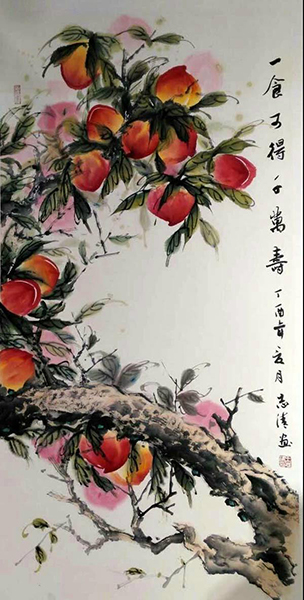 一食可得千萬壽
丁酉年夏月志清画